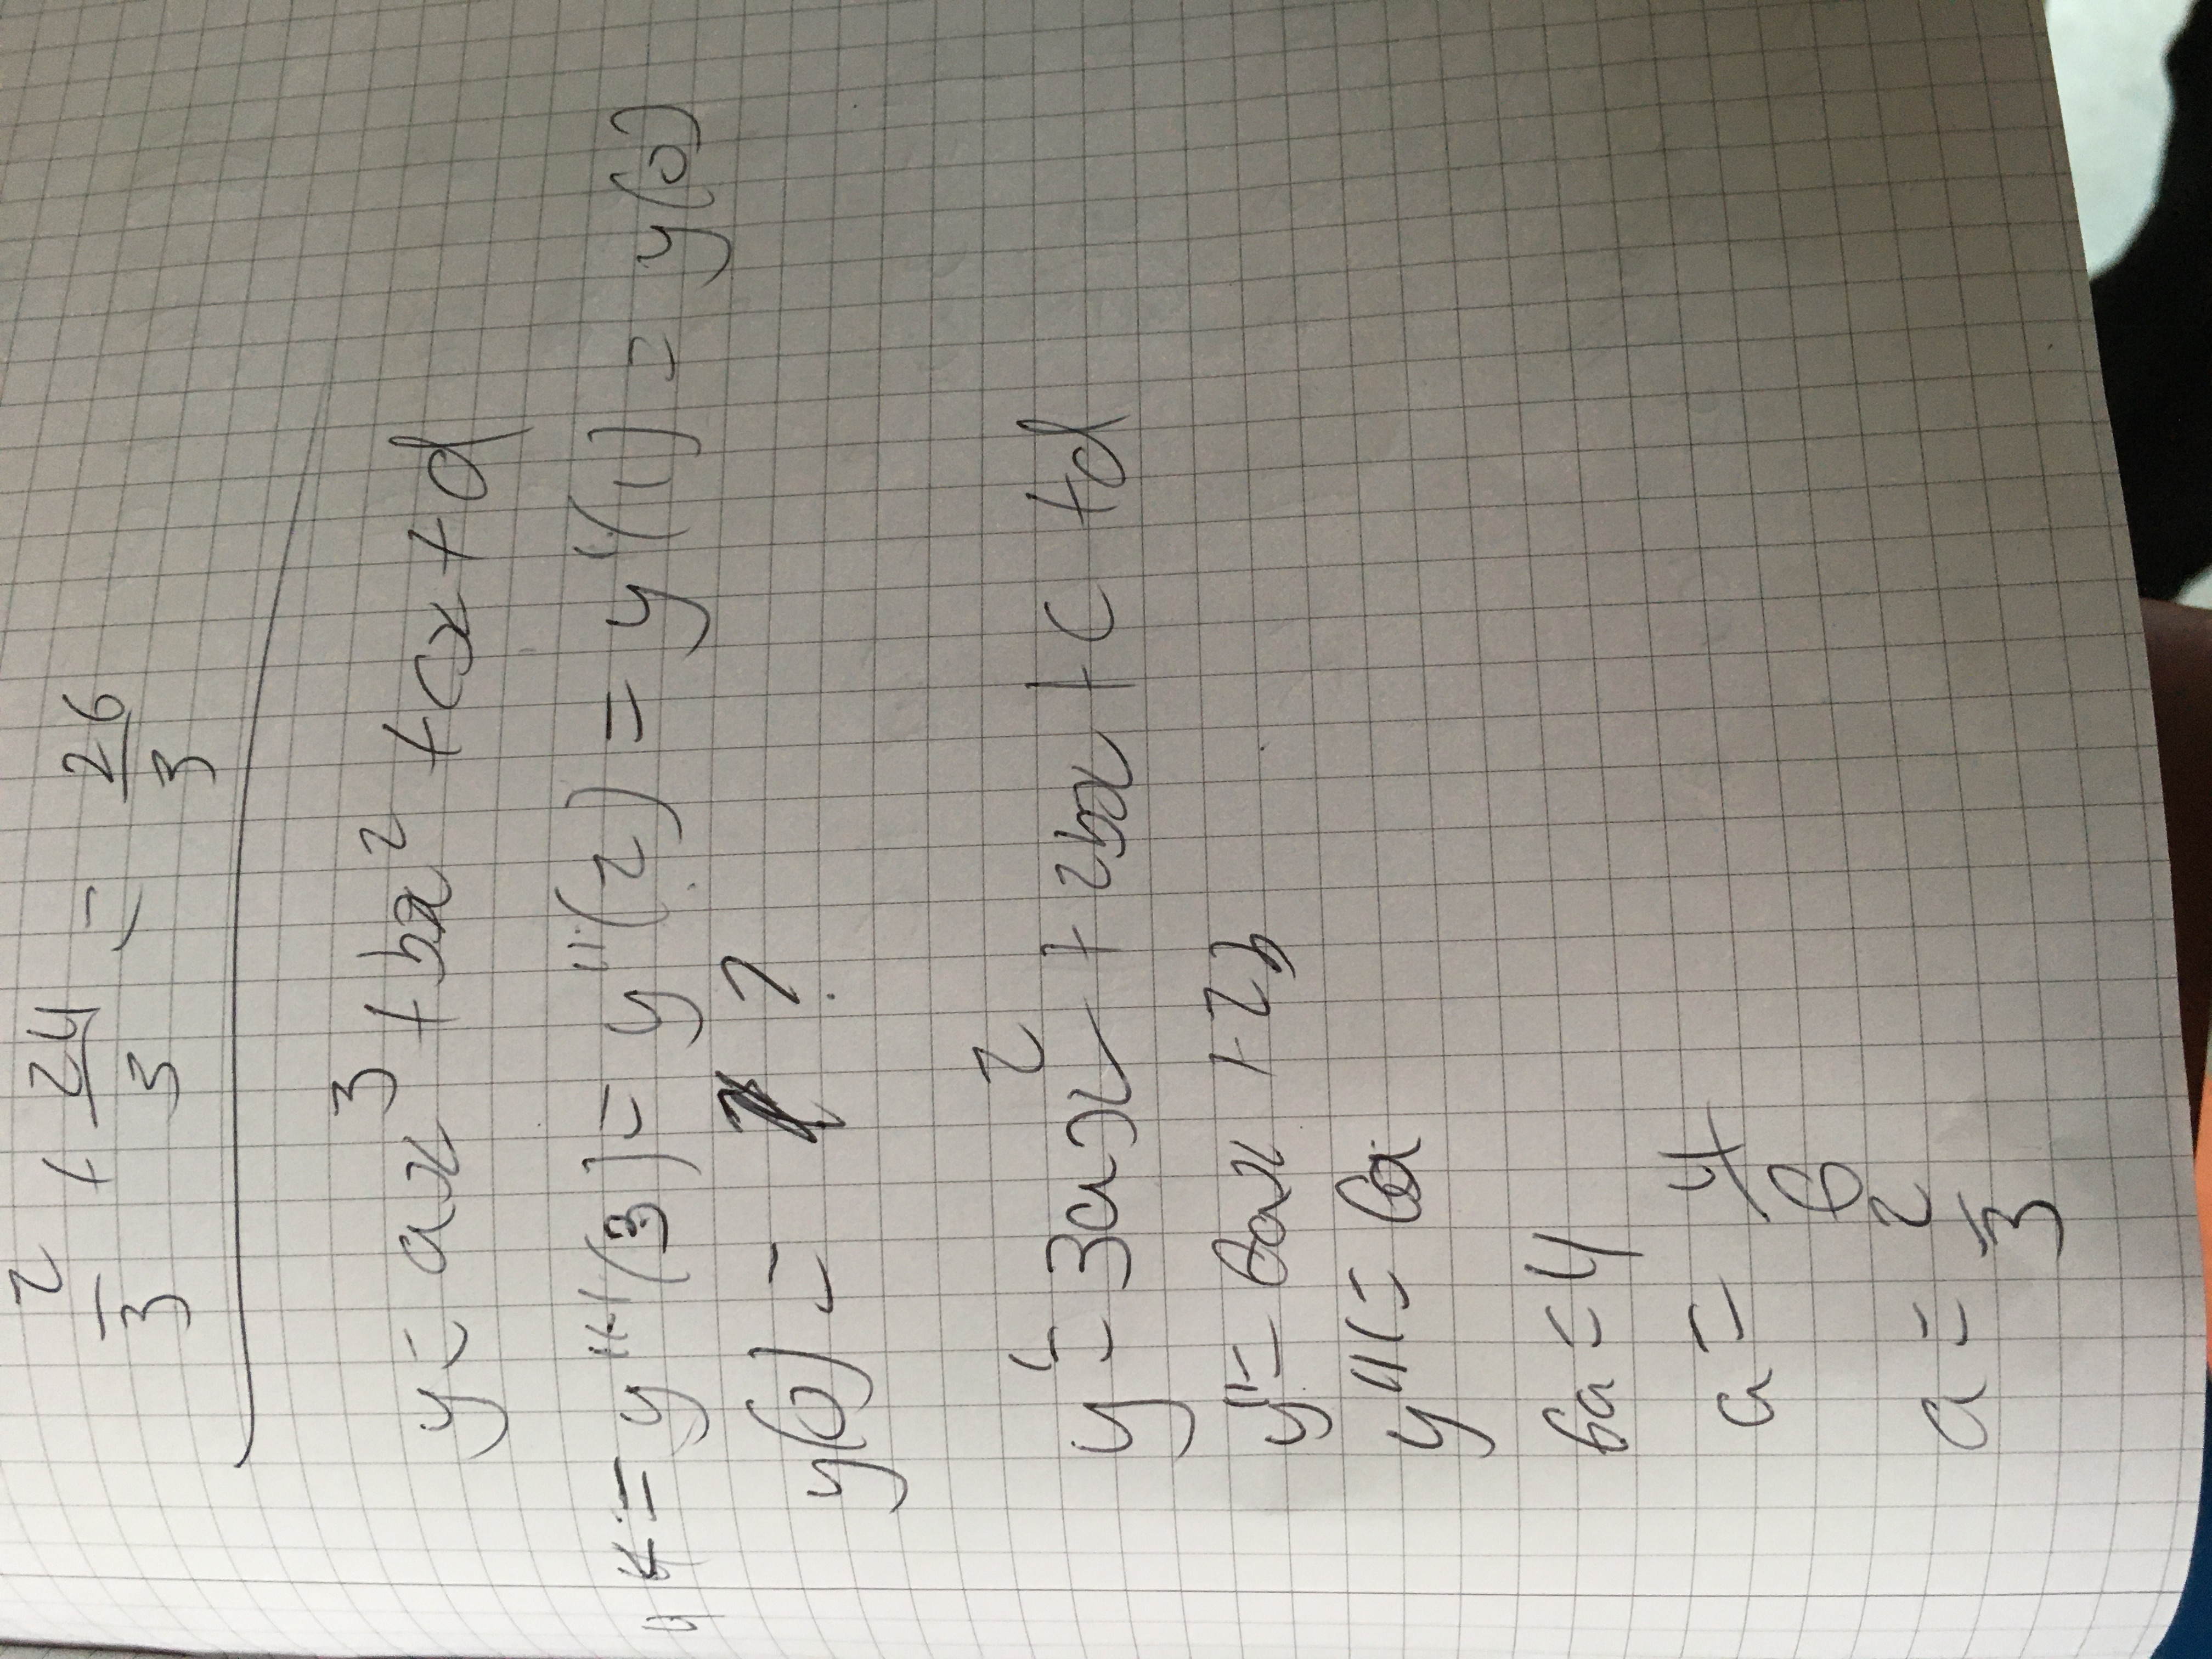 2/3 + 24/3 = 26/3
y = ax³ + bx² + cx + d
4 = y'''(3) = y''(2) = y'(1) = y(0)
y(0) = ?
y' = 3ax² + 2bx + c + d
y'' = 6ax + 2b
y''' = 6a
6a = 4
a = 4/6
a = 2/3